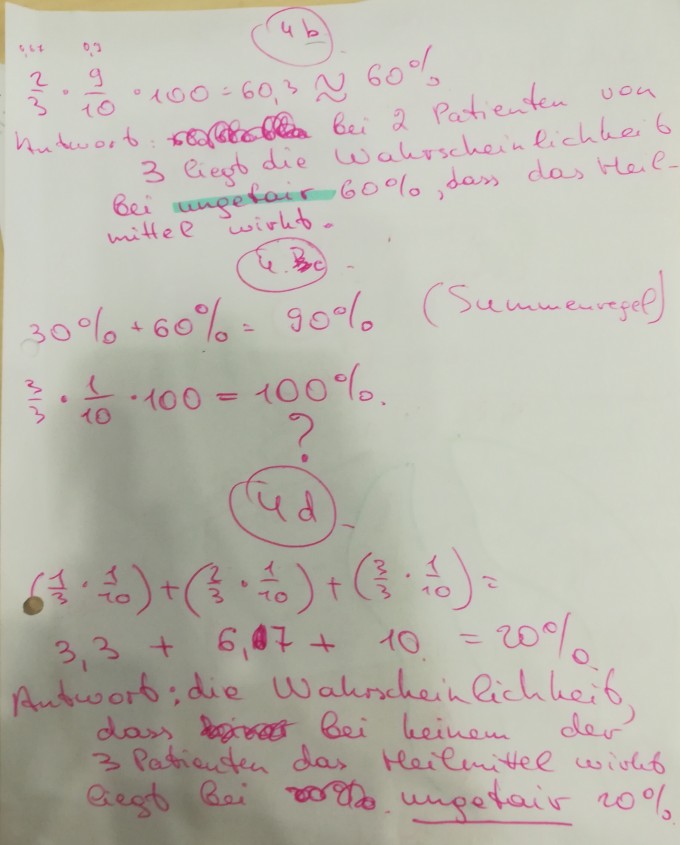 4b
0,67 0,9
2/3 · 9/10 · 100 = 60,3 ≈ 60%
Antwort: Bei 2 Patienten von
3 liegt die Wahrscheinlichkeit
Bei ungefair 60%, dass das Heil-
mittel wirkt.
4.c
30% + 60% = 90% (Summenregel)
3/3 · 1/10 · 100 = 100%.
?
4d
(1/3 · 1/10) + (2/3 · 1/10) + (3/3 · 1/10) =
3,3 + 6,7 + 10 = 20%.
Antwort: die Wahrscheinlichkeit,
dass Bei keinem der
3 Patienten das Heilmittel wirkt
liegt Bei ungefair 20%.